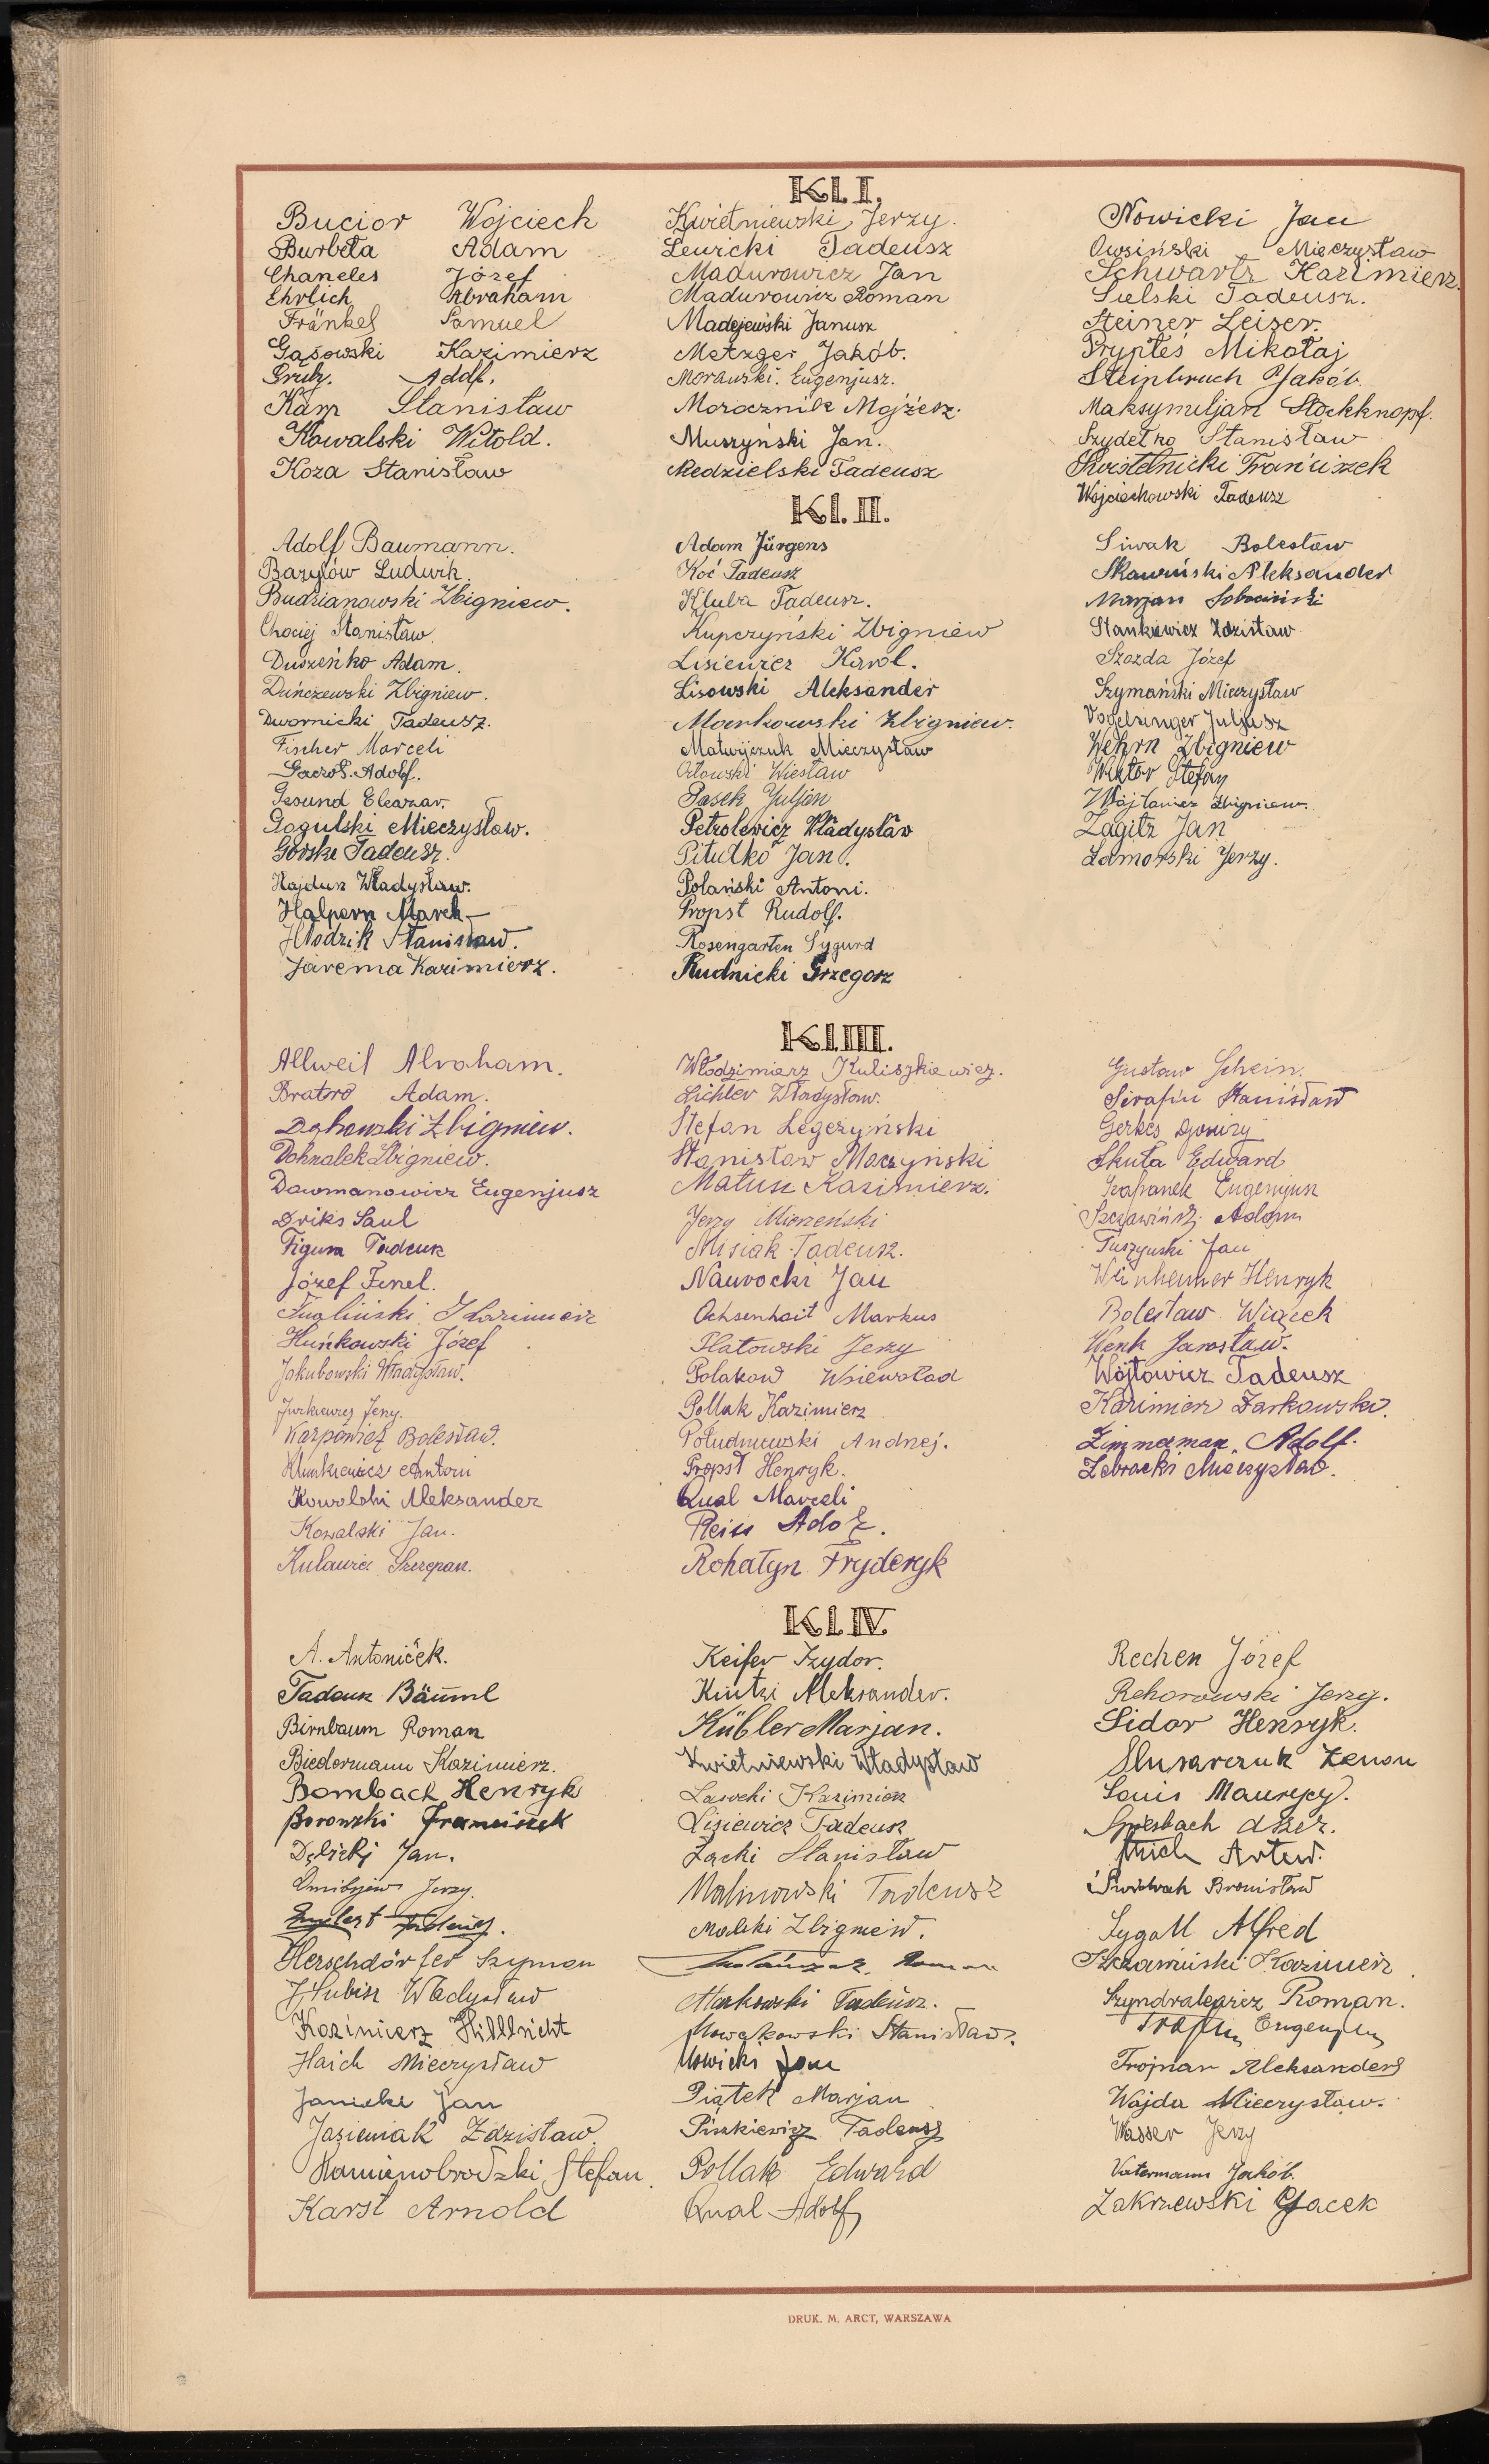 Kl. I.
Bucior Wojciech
Burbeta Adam
Chaneles Józef
Ehrlich Abraham
Fränkel Samuel
Gąsowski Kazimierz
Kam Stanisław
Kowalski Witold.
Koza Stanisław
Kwietniewski Jerzy.
Lewicki Tadeusz
Madurowicz Jan
Madurowicz Roman
Madejewski Janusz
Metzger Jakób.
Morawski. Eugenjusz.
Morocznik Mojżesz.
Muszyński Jan.
Niedzielski Tadeusz
Nowicki Jan
Owsiński Mieczysław
Schwartz Kazimierz.
Sielski Tadeusz.
Steiner Leizer.
Prypteś Mikołaj
Steinbruch Jakób.
Maksymiljan Stockknopf.
Szydełko Stanisław
Kwistelnicki Franciszek
Wojciechowski Tadeusz
Kl. II.
Adolf Baumann.
Bazylów Ludwik.
Budzianowski Zbigniew.
Chociej Stanisław.
Duszeńko Adam.
Duńczewski Zbigniew.
Dwornicki Tadeusz.
Fischer Marceli
Adolf.
Gesund Eleazar.
Gogulski Mieczysław.
Górski Tadeusz.
Hajduk Władysław.
Halpern Marek
Hłodzik Stanisław.
Jarema Kazimierz.
Adam Jürgens
Koć Tadeusz
Kluba Tadeusz.
Kupczyński Zbigniew
Lisiewicz Karol.
Lisowski Aleksander
Markowski Zbigniew.
Matwijczuk Mieczysław
Orłowski Wiesław
Pasek Juljan
Petrolewicz Władysław
Pitułko Jan.
Polański Antoni.
Propst Rudolf.
Rosengarten Sygurd
Rudnicki Grzegorz
Siwak Bolesław
Skawiński Aleksander
Marjan Sobociński
Stankiewicz Zdzisław
Szazda Józef
Szymański Mieczysław
Vogelsinger Juljusz
Wehrn Zbigniew
Wiktor Stefan
Wójtowicz Zbigniew.
Zagitz Jan
Zamorski Jerzy.
Kl. III.
Allweil Abraham.
Bratro Adam.
Dąbrowski Zbigniew.
Dohnalek Zbigniew.
Dowmanowicz Eugenjusz
Driks Saul
Figura Tadeusz
Józef Finel.
Kazimierz
Huńkowski Józef
Jakubowski Władysław.
Jurkiewicz Jerzy.
Karpowicz Bolesław.
Klimkiewicz Antoni
Kowalski Aleksander
Kowalski Jan.
Kuławic Szczepan.
Włodzimierz Kuliszkiewicz.
Lichter Władysław.
Stefan Legeżyński
Stanisław Maczyński
Matusz Kazimierz.
Jerzy Mierzeński
Misiak Tadeusz.
Nawrocki Jan
Ochsenhait Markus
Platowski Jerzy
Polakow Wsiewoład
Pollak Kazimierz
Południewski Andrzej.
Propst Henryk.
Qual Marceli
Reiss Adolf.
Rohatyn Fryderyk
Gustaw Schein.
Serafin Stanisław
Skuta Edward
Szafranek Eugenjusz
Adam
Tuszyński Jan
Weinheimer Henryk
Bolesław Wiącek
Wenk Jarosław.
Wójtowicz Tadeusz
Kazimierz Żarkowski.
Zimmerman. Adolf.
Żebracki Mieczysław.
Kl. IV.
A. Antoniček.
Tadeusz Bäuml
Birnbaum Roman
Biedermann Kazimierz.
Bombach Henryk
Borowski Franciszek
Dębicki Jan.
Jerzy.
Herschdörfer Szymon
Hubisz Władysław
Kazimierz Hilllricht
Haich Mieczysław
Janicki Jan
Jasieniak Zdzisław.
Kamienobrodzki Stefan.
Karst Arnold
Keifer Izydor.
Kintzi Aleksander.
Kübler Marjan.
Kwietniewski Władysław
Lasocki Kazimierz
Lisiewicz Tadeusz
Łącki Stanisław
Malinowski Tadeusz
Malski Zbigniew.
Roman
Markowski Tadeusz.
Nowakowski Stanisław.
Nowicki Jan
Piątek Marjan
Piszkiewicz Tadeusz
Pollak Edward
Qual Adolf
Rechen Józef
Rehorowski Jerzy.
Sidor Henryk.
Slusarczuk Zenon
Sonis Maurycy.
Spiesbach
Artur.
Bronisław
Sygall Alfred
Szczamiński Kazimierz
Szyndralewicz Roman.
Eugenjusz
Trojnar Aleksander
Wajda Mieczysław.
Wasser Jerzy
Vatermann Jakób.
Zakrzewski Jacek
DRUK. M. ARCT, WARSZAWA